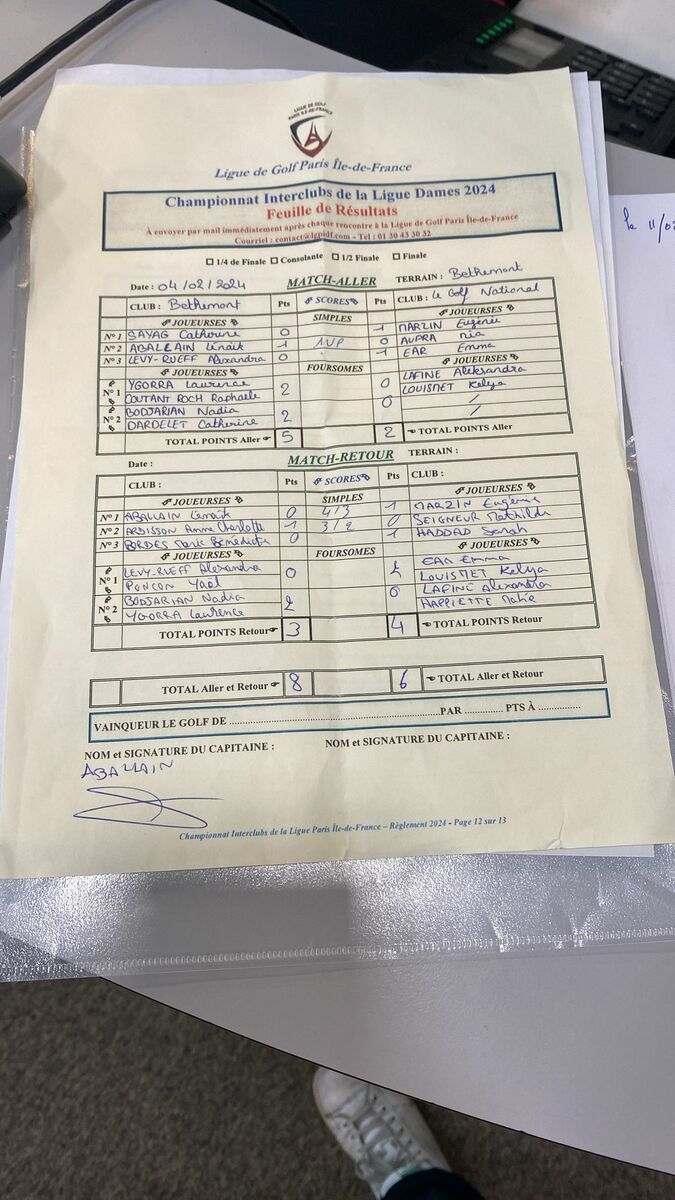 LIGUE DE GOLF
PARIS ILE-DE-FRANCE
Ligue de Golf Paris Île-de-France
Championnat Interclubs de la Ligue Dames 2024
Feuille de Résultats
À envoyer par mail immédiatement après chaque rencontre à la Ligue de Golf Paris Île-de-France
Courriel : contact@lgpidf.com - Tel : 01 30 43 30 32
1/4 de Finale Consolante 1/2 Finale Finale
Date : 04/02/2024 MATCH-ALLER TERRAIN : Bethemont
CLUB : Bethemont Pts SCORES Pts CLUB : Le Golf National
JOUEURSES SIMPLES JOUEURSES
N° 1 SAYAG Catherine 0 1 MARZIN Eugénie
N° 2 ABALLAIN Lénaïk 1 1UP 0 AUPRA Mia
N° 3 LEVY-RUEFF Alexandra 0 1 EAR Emma
JOUEURSES FOURSOMES JOUEURSES
N° 1 YGORRA Laurence 2 0 LAFINE Aleksandra
COUTANT ROCH Raphaele LOUISMET Kelya
N° 2 BODJARIAN Nadia 2 0 /
DARDELET Catherine /
TOTAL POINTS Aller 5 2 TOTAL POINTS Aller
Date : MATCH-RETOUR TERRAIN :
CLUB : Pts SCORES Pts CLUB :
JOUEURSES SIMPLES JOUEURSES
N° 1 ABALLAIN Lenaïk 0 4/3 1 MARZIN Eugénie
N° 2 ARDISSON Anne Charlotte 1 3/2 0 SEIGNEUR Mathilde
N° 3 BORDES Marie Bénédicte 0 1 HADDAD Sarah
JOUEURSES FOURSOMES JOUEURSES
N° 1 LEVY-RUEFF Alexandra 0 2 EAR Emma
PONCON Yael LOUISMET Kelya
N° 2 BODJARIAN Nadia 2 0 LAFINE Alexandra
YGORRA Laurence HAPPIETTE
TOTAL POINTS Retour 3 4 TOTAL POINTS Retour
TOTAL Aller et Retour 8 6 TOTAL Aller et Retour
VAINQUEUR LE GOLF DE ........ PAR ........ PTS À ........
NOM et SIGNATURE DU CAPITAINE : NOM et SIGNATURE DU CAPITAINE :
ABALLAIN
Championnat Interclubs de la Ligue Paris Île-de-France – Règlement 2024 - Page 12 sur 13